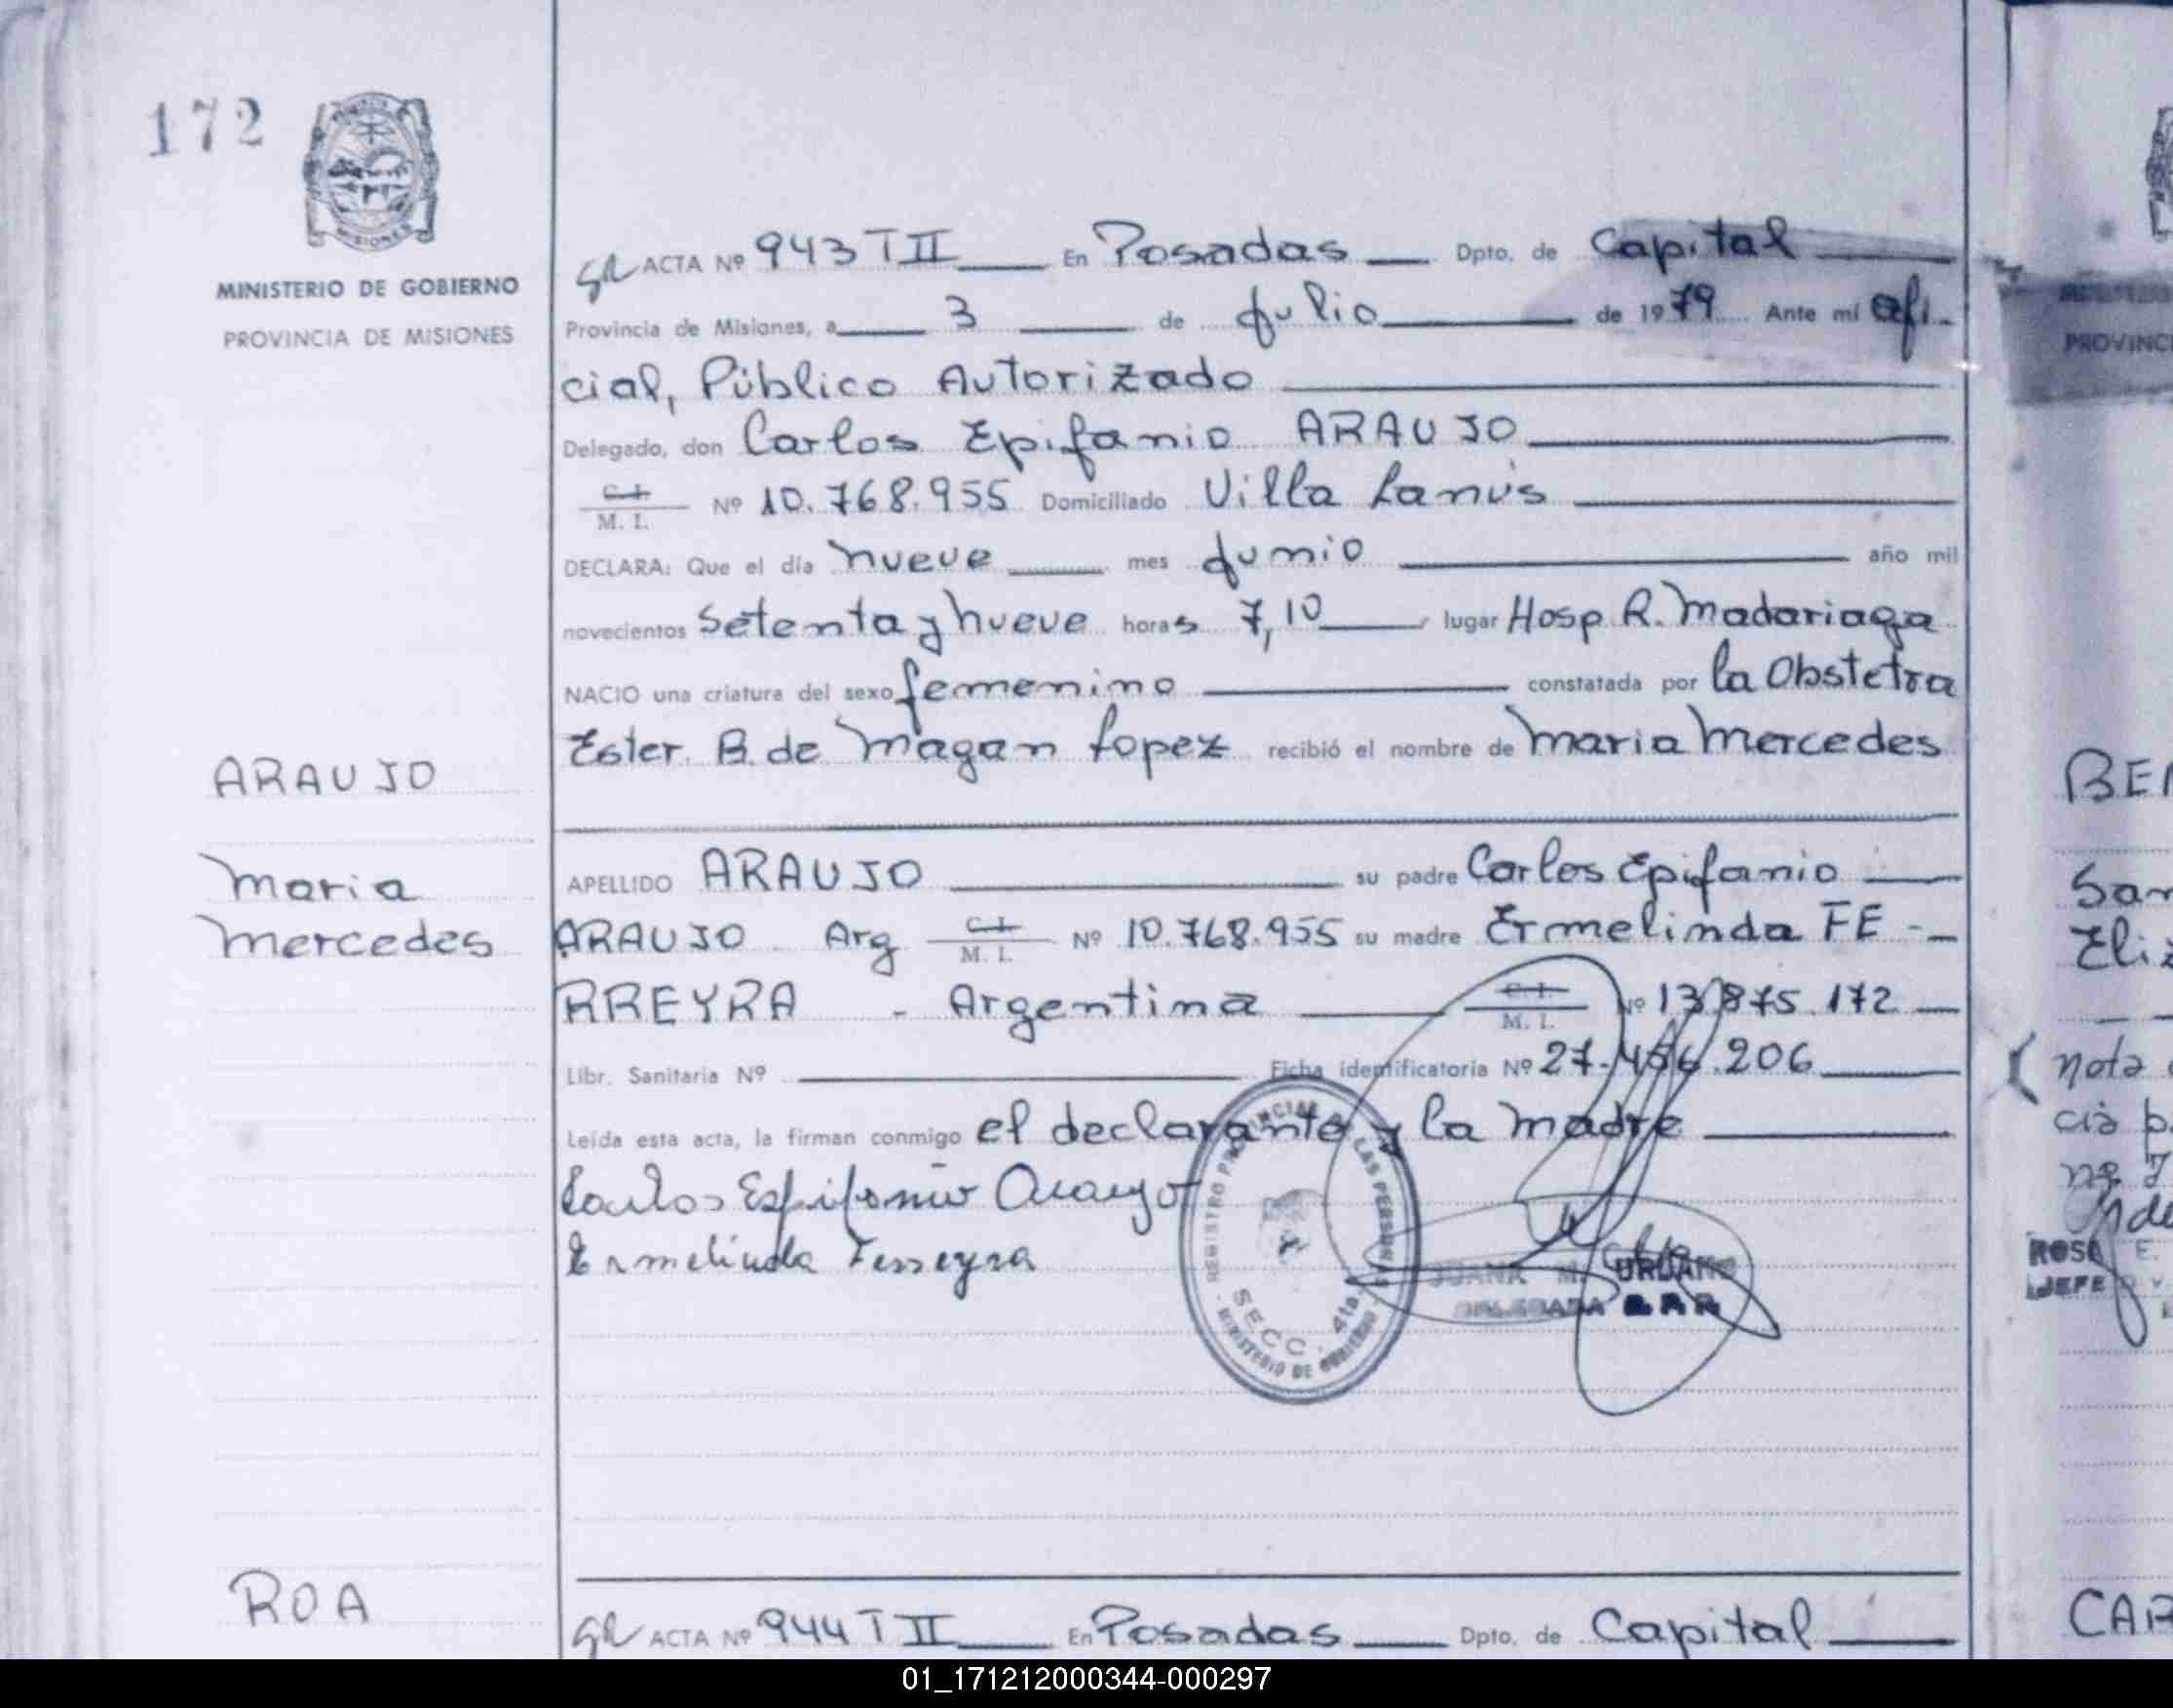 172
MISIONES
MINISTERIO DE GOBIERNO
PROVINCIA DE MISIONES
ACTA Nº 943 T II En Posadas Dpto. de Capital
Provincia de Misiones, a 3 de Julio de 1979 Ante mí Ofi-
cial, Público Autorizado
Delegado, don Carlos Epifanio ARAUJO
C. I.
M. I. Nº 10.768.955 Domiciliado Villa Lanús
DECLARA: Que el día nueve mes Junio año mil
novecientos setenta y nueve horas 7,10 lugar Hosp R. Madariaga
NACIO una criatura del sexo femenino constatada por la Obstetra
Ester. B. de Magan Lopez recibió el nombre de Maria Mercedes
ARAUJO
Maria
Mercedes
APELLIDO ARAUJO su padre Carlos Epifanio
ARAUJO Arg C. I. M. I. Nº 10.768.955 su madre Ermelinda FE-
RREYRA - Argentina C. I. M. I. Nº 13.875.172
Libr. Sanitaria Nº Ficha identificatoria Nº 27.456.206
Leída esta acta, la firman conmigo el declarante y la madre
Carlos Epifanio Araujo
Ermelinda Ferreyra
REGISTRO PROVINCIAL DE LAS PERSONAS
SECC. 4ta.
MINISTERIO DE GOBIERNO
JUANA M. URBANO
DELEGADA
ROA
ACTA Nº 944 T II En Posadas Dpto. de Capital
PROVINC
BE
San
Eli
nota
cia p
ROSA E.
JEFE
CA
01_171212000344-000297